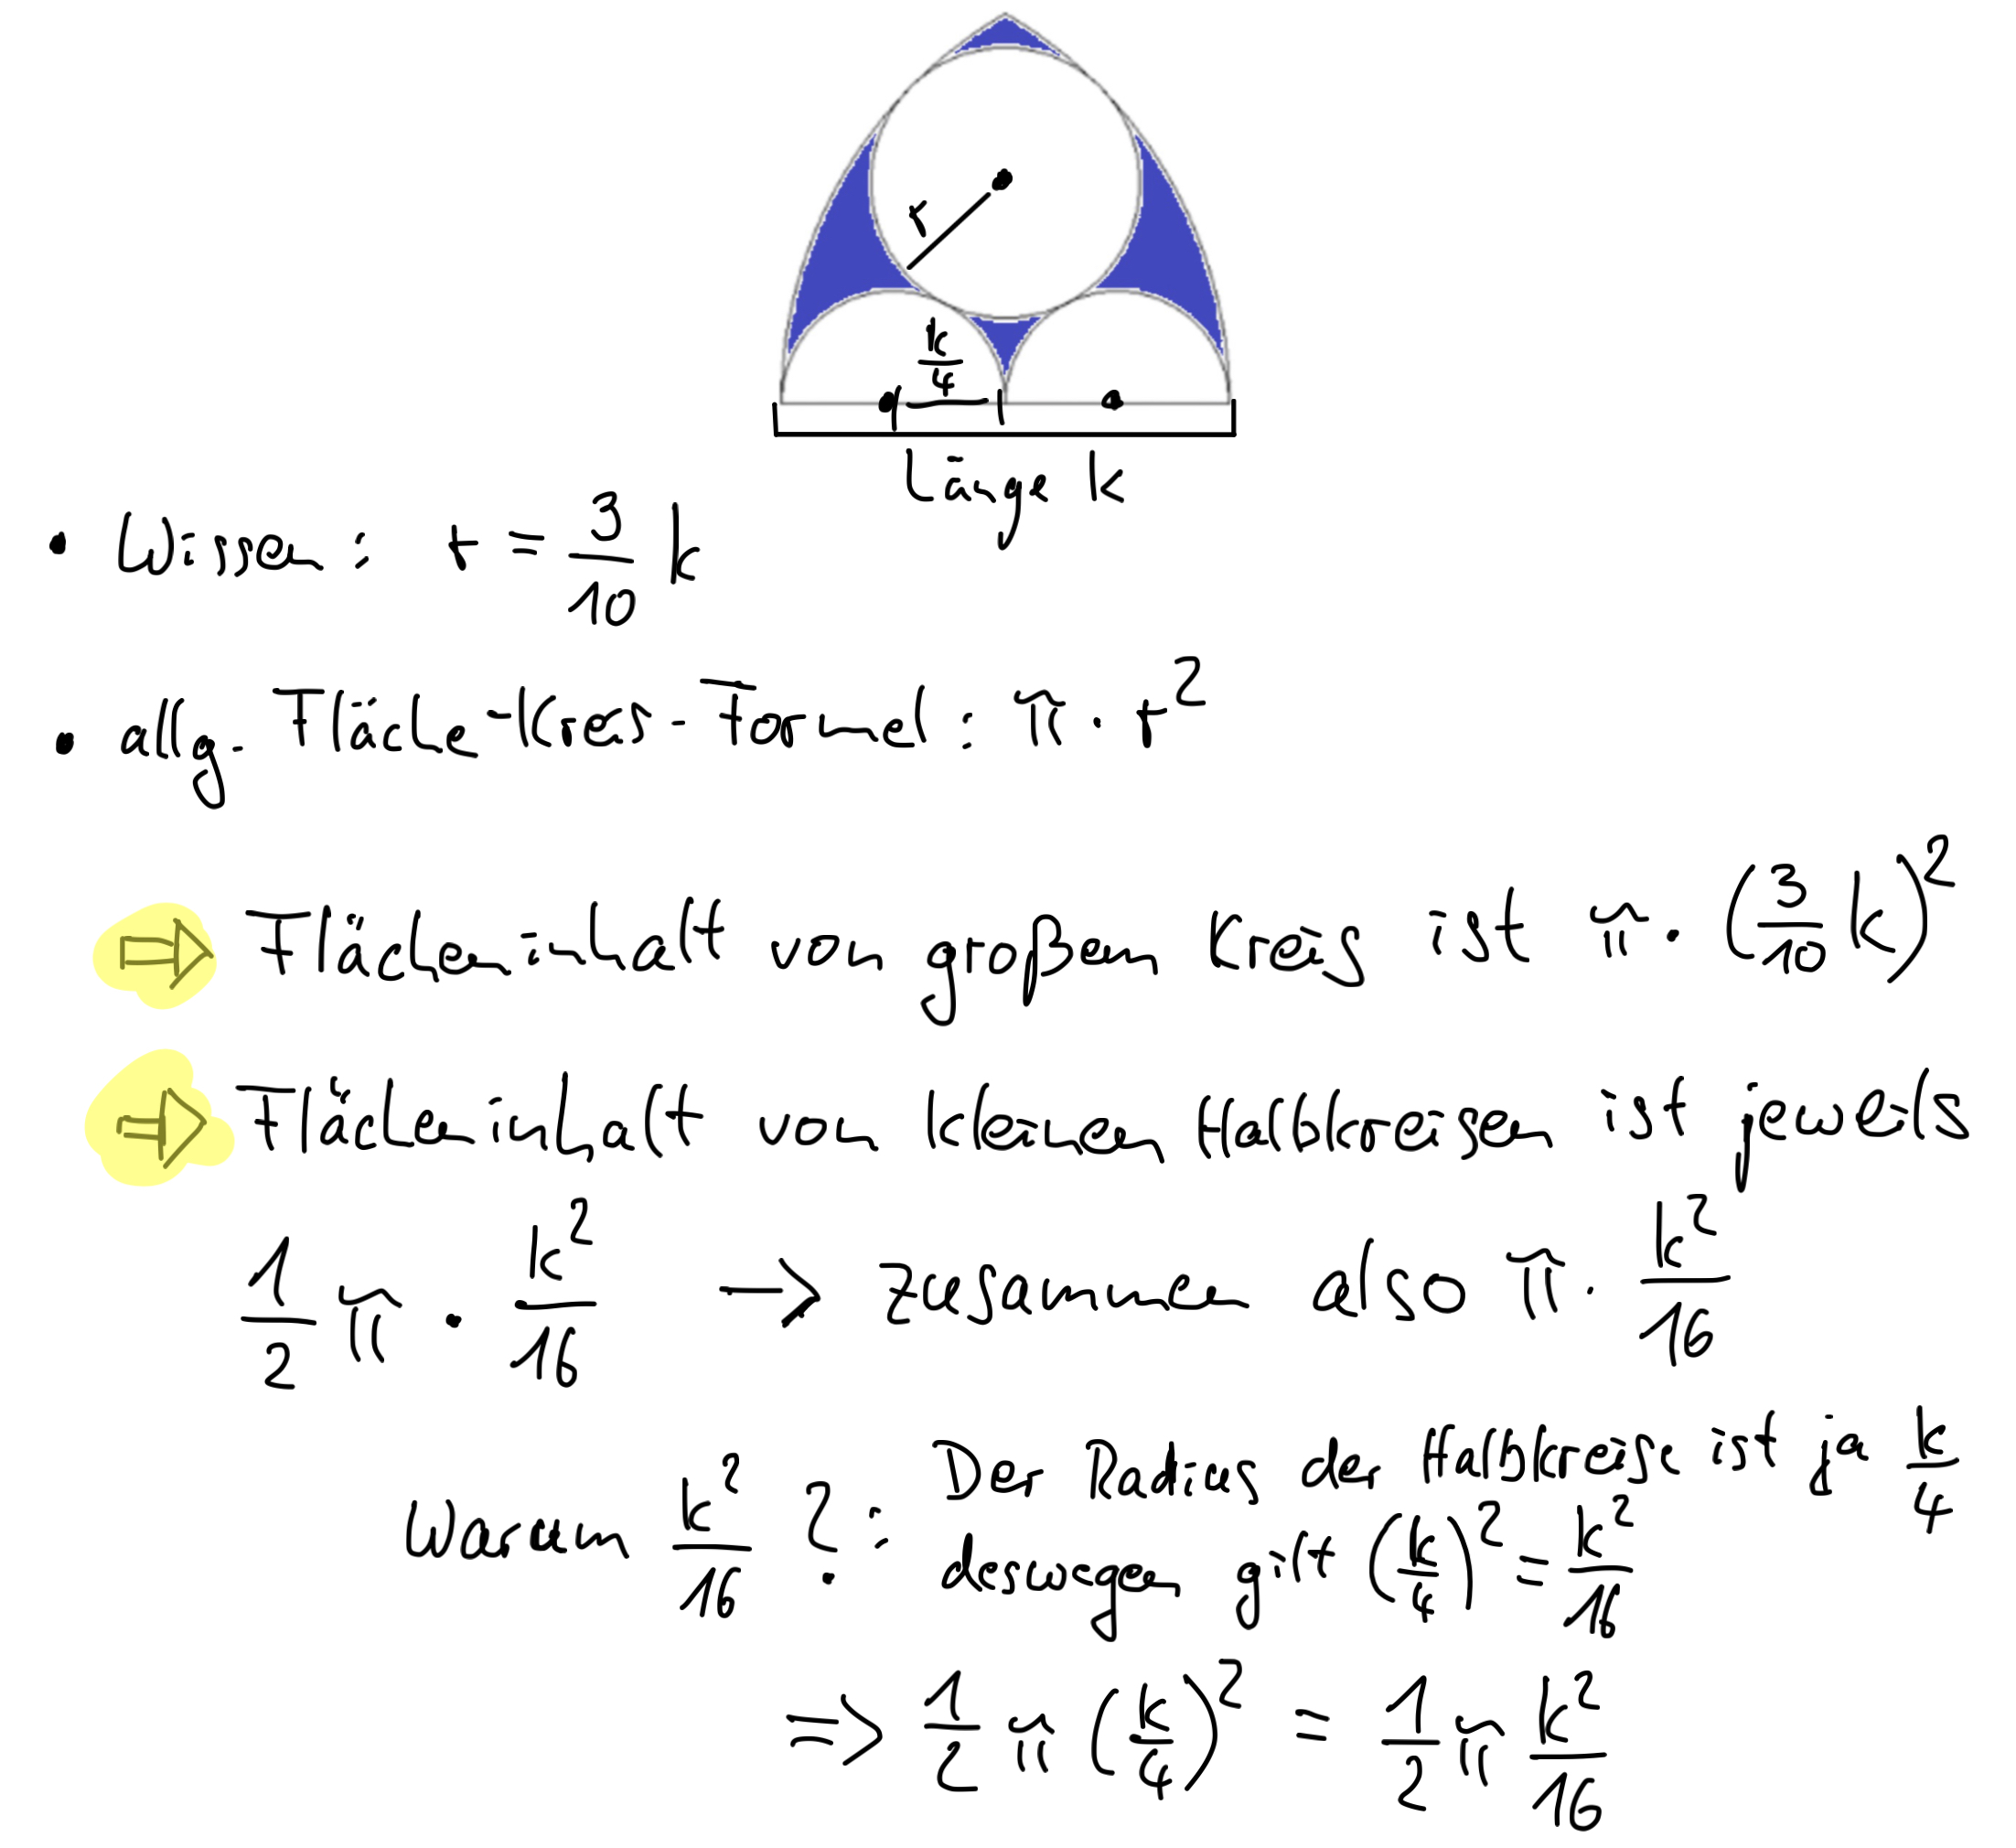 r
k/4
Länge k
• Wissen: r = 3/10 k
• allg. Fläche-Kreis-Formel: π · r²
⇒ Flächeninhalt von großem Kreis ist π · (3/10 k)²
⇒ Flächeninhalt von kleinen Halbkreisen ist jeweils
1/2 π · k²/16 → zusammen also π · k²/16
Warum k²/16 ?: Der Radius der Halbkreise ist ja k/4
deswegen gilt (k/4)² = k²/16
⇒ 1/2 π (k/4)² = 1/2 π k²/16